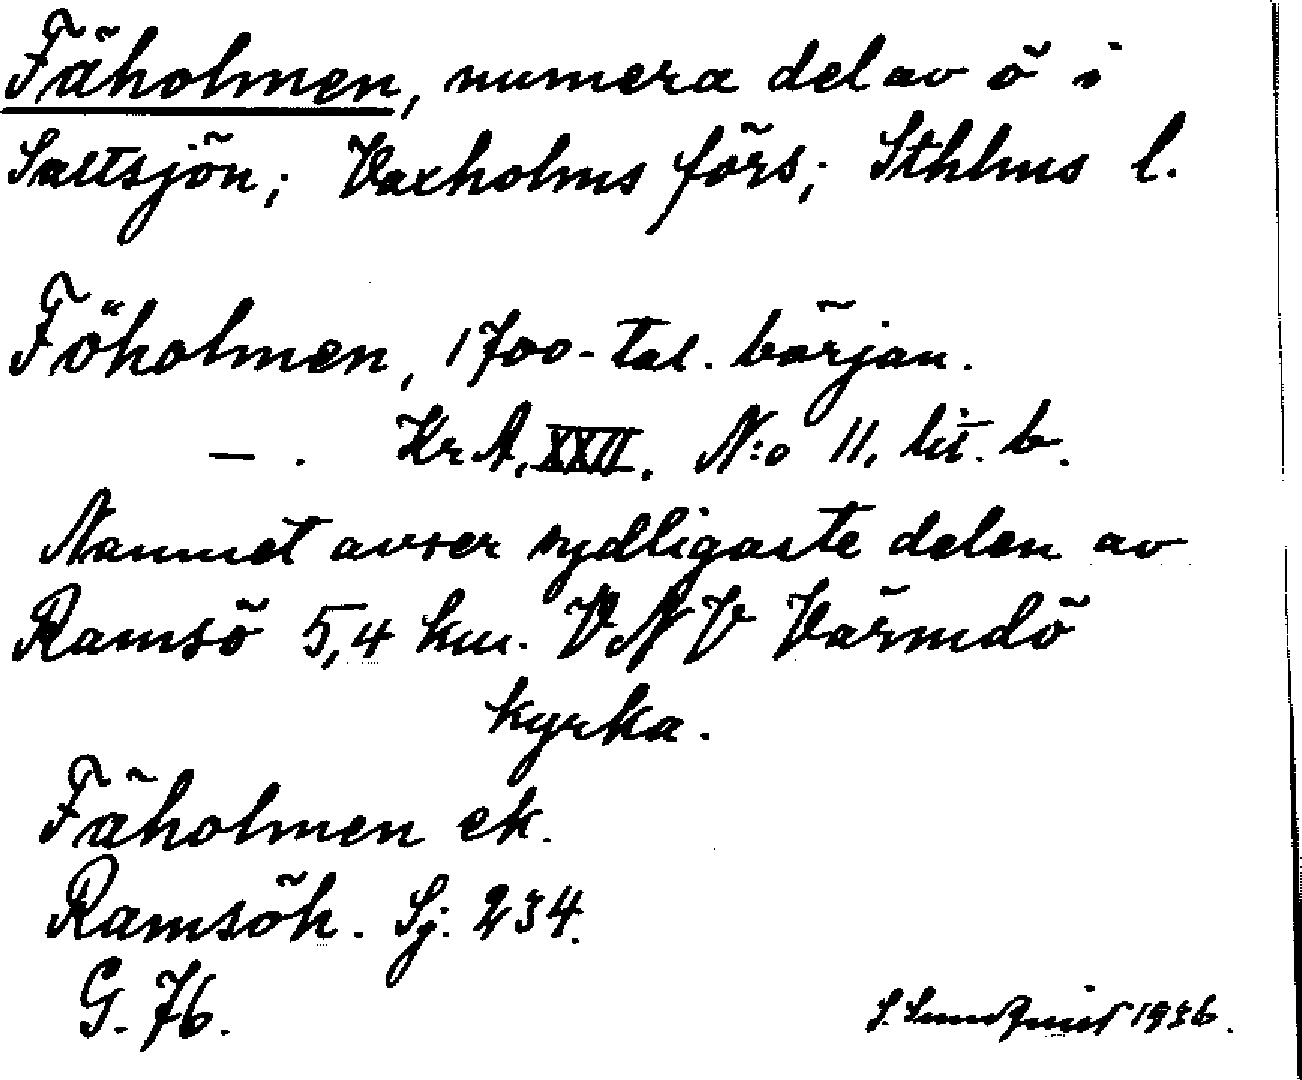 Fäholmen, numera del av ö i
Saltsjön; Vaxholms förs; Sthlms l.
Föholmen, 1700-tal. början.
— . Kr A. XXII. N:o 11. lit. b.
Namnet avser sydligaste delen av
Ramsö 5,4 km. VNV Värmdö
kyrka.
Fäholmen ek.
Ramsöh. Sj. 234.
G. 76.
S. Sundquist 1936.